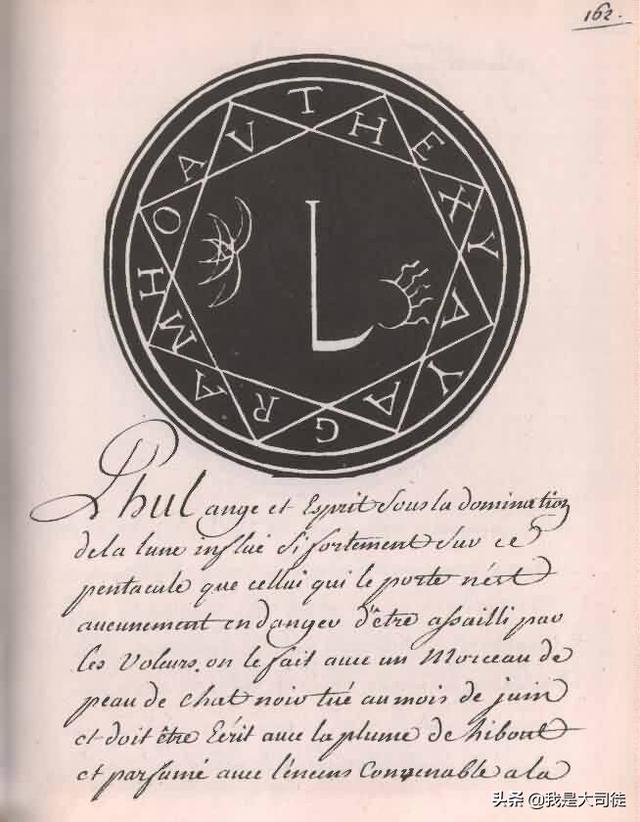 162.
T H E X Y A Y A G R A M H O A V
L
Phul ange et Esprit Sous la domination
de la lune influe Si fortement Sur ce
pentacule que cellui qui le porte n'est
aucunement en danger d'être assailli par
les Voleurs. on le fait avec un Morceau de
peau de Chat noir tué au mois de juin
et doit être Ecrit avec la plume de hibout
et parfumé avec l'encens Convenable a la
头条 @我是大司徒